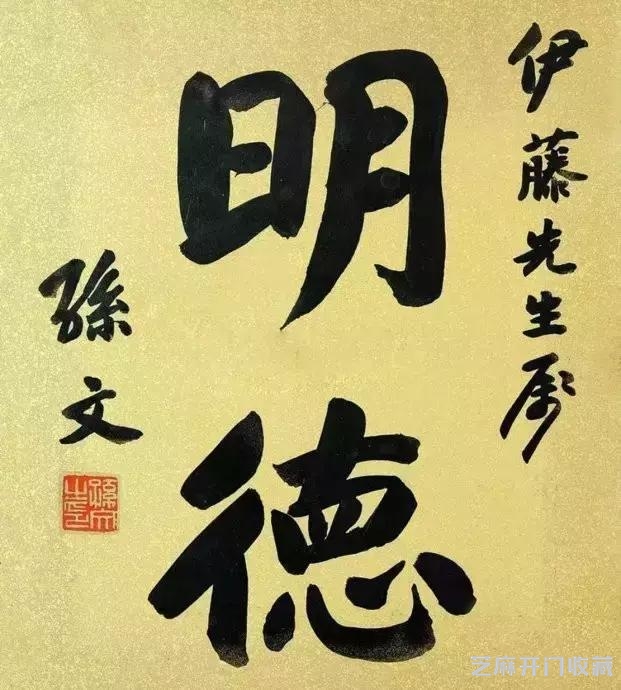 伊藤先生属
明德
孫文
孫文之印
芝麻开门收藏